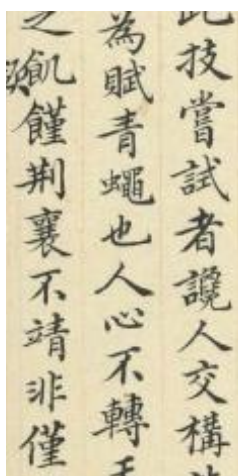 此技嘗試者讒人交構
為賦青蠅也人心不轉
之飢饉荆襄不靖非僅